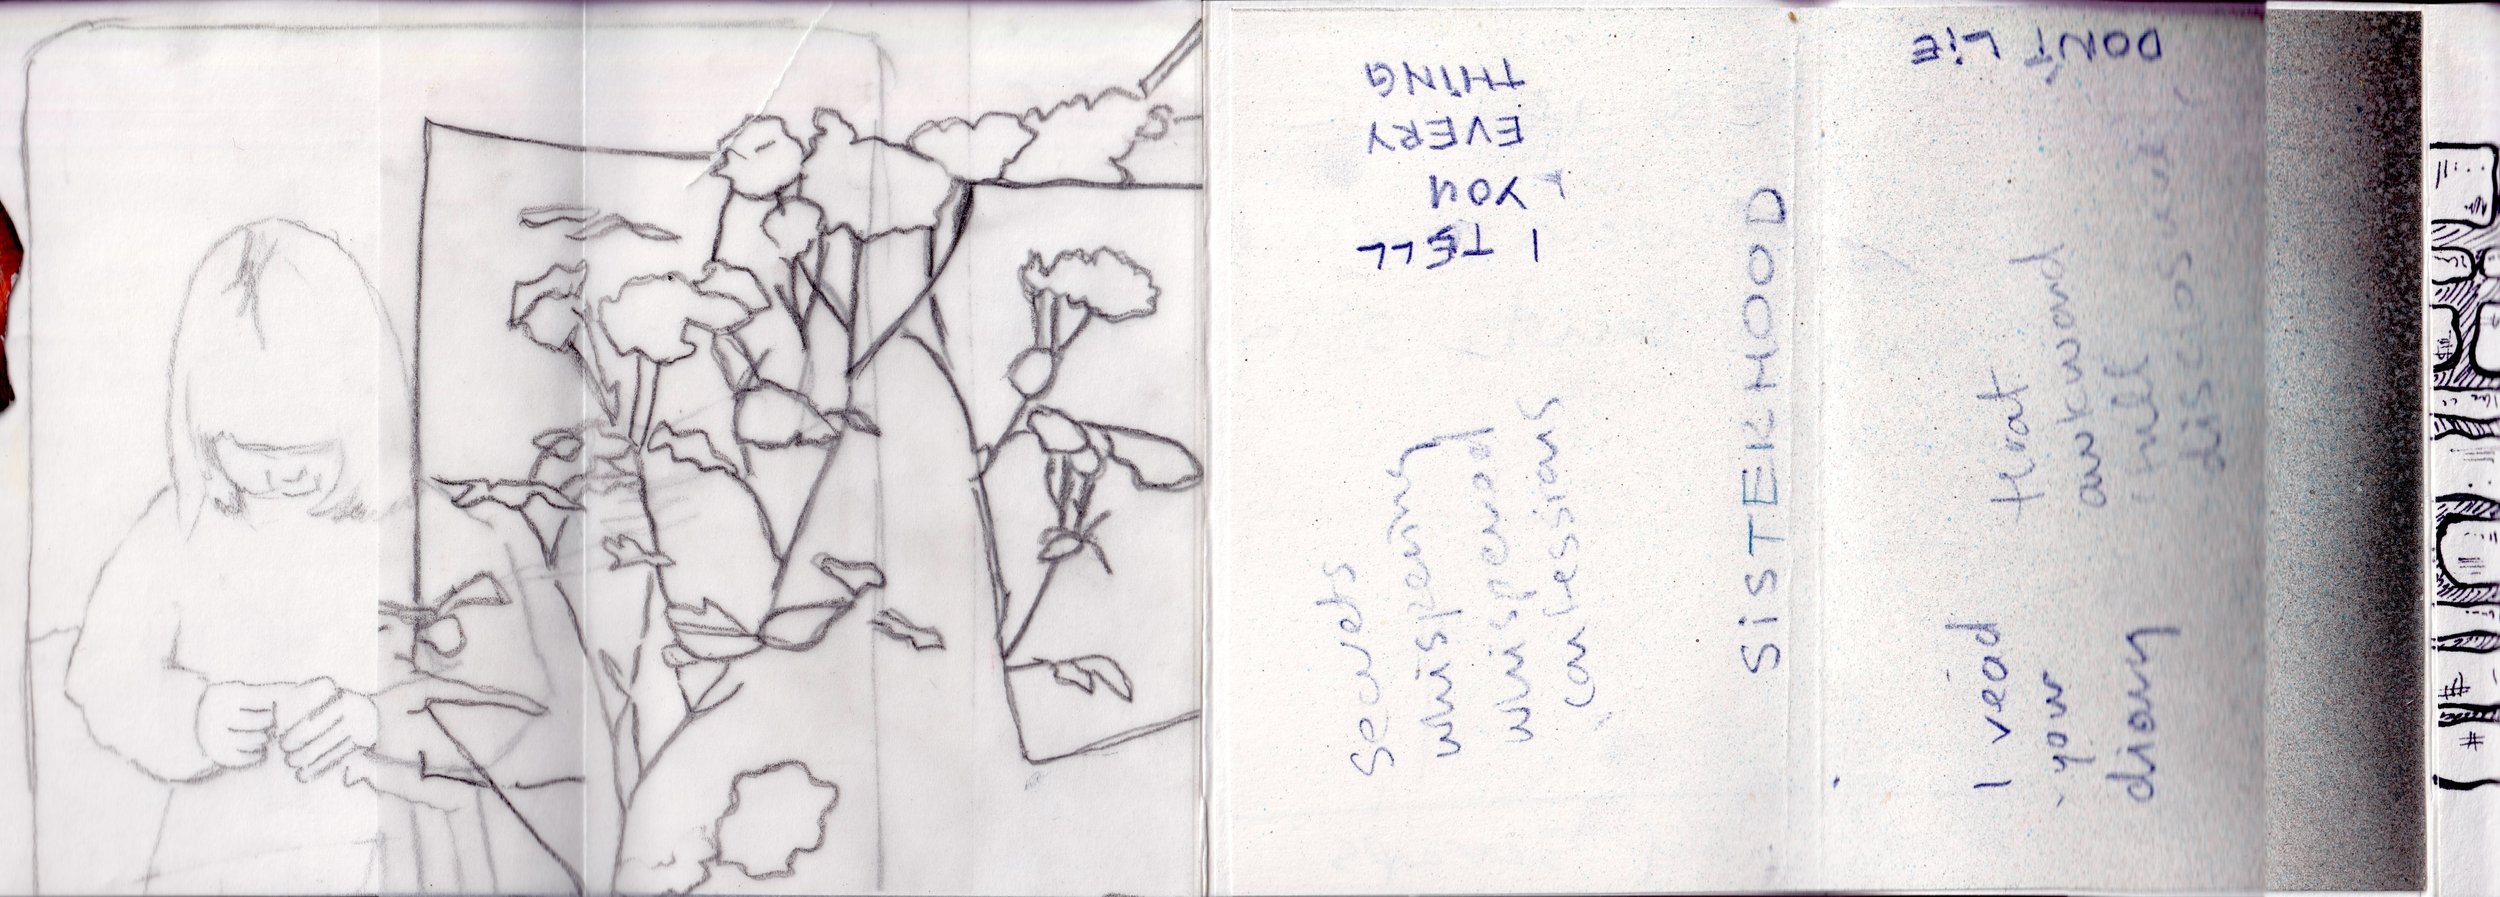 I TELL
YOU
EVERY
THING
secrets
whispering
whispered
confessions
SISTERHOOD
DON'T LIE
I read
your
diary
that
awkward